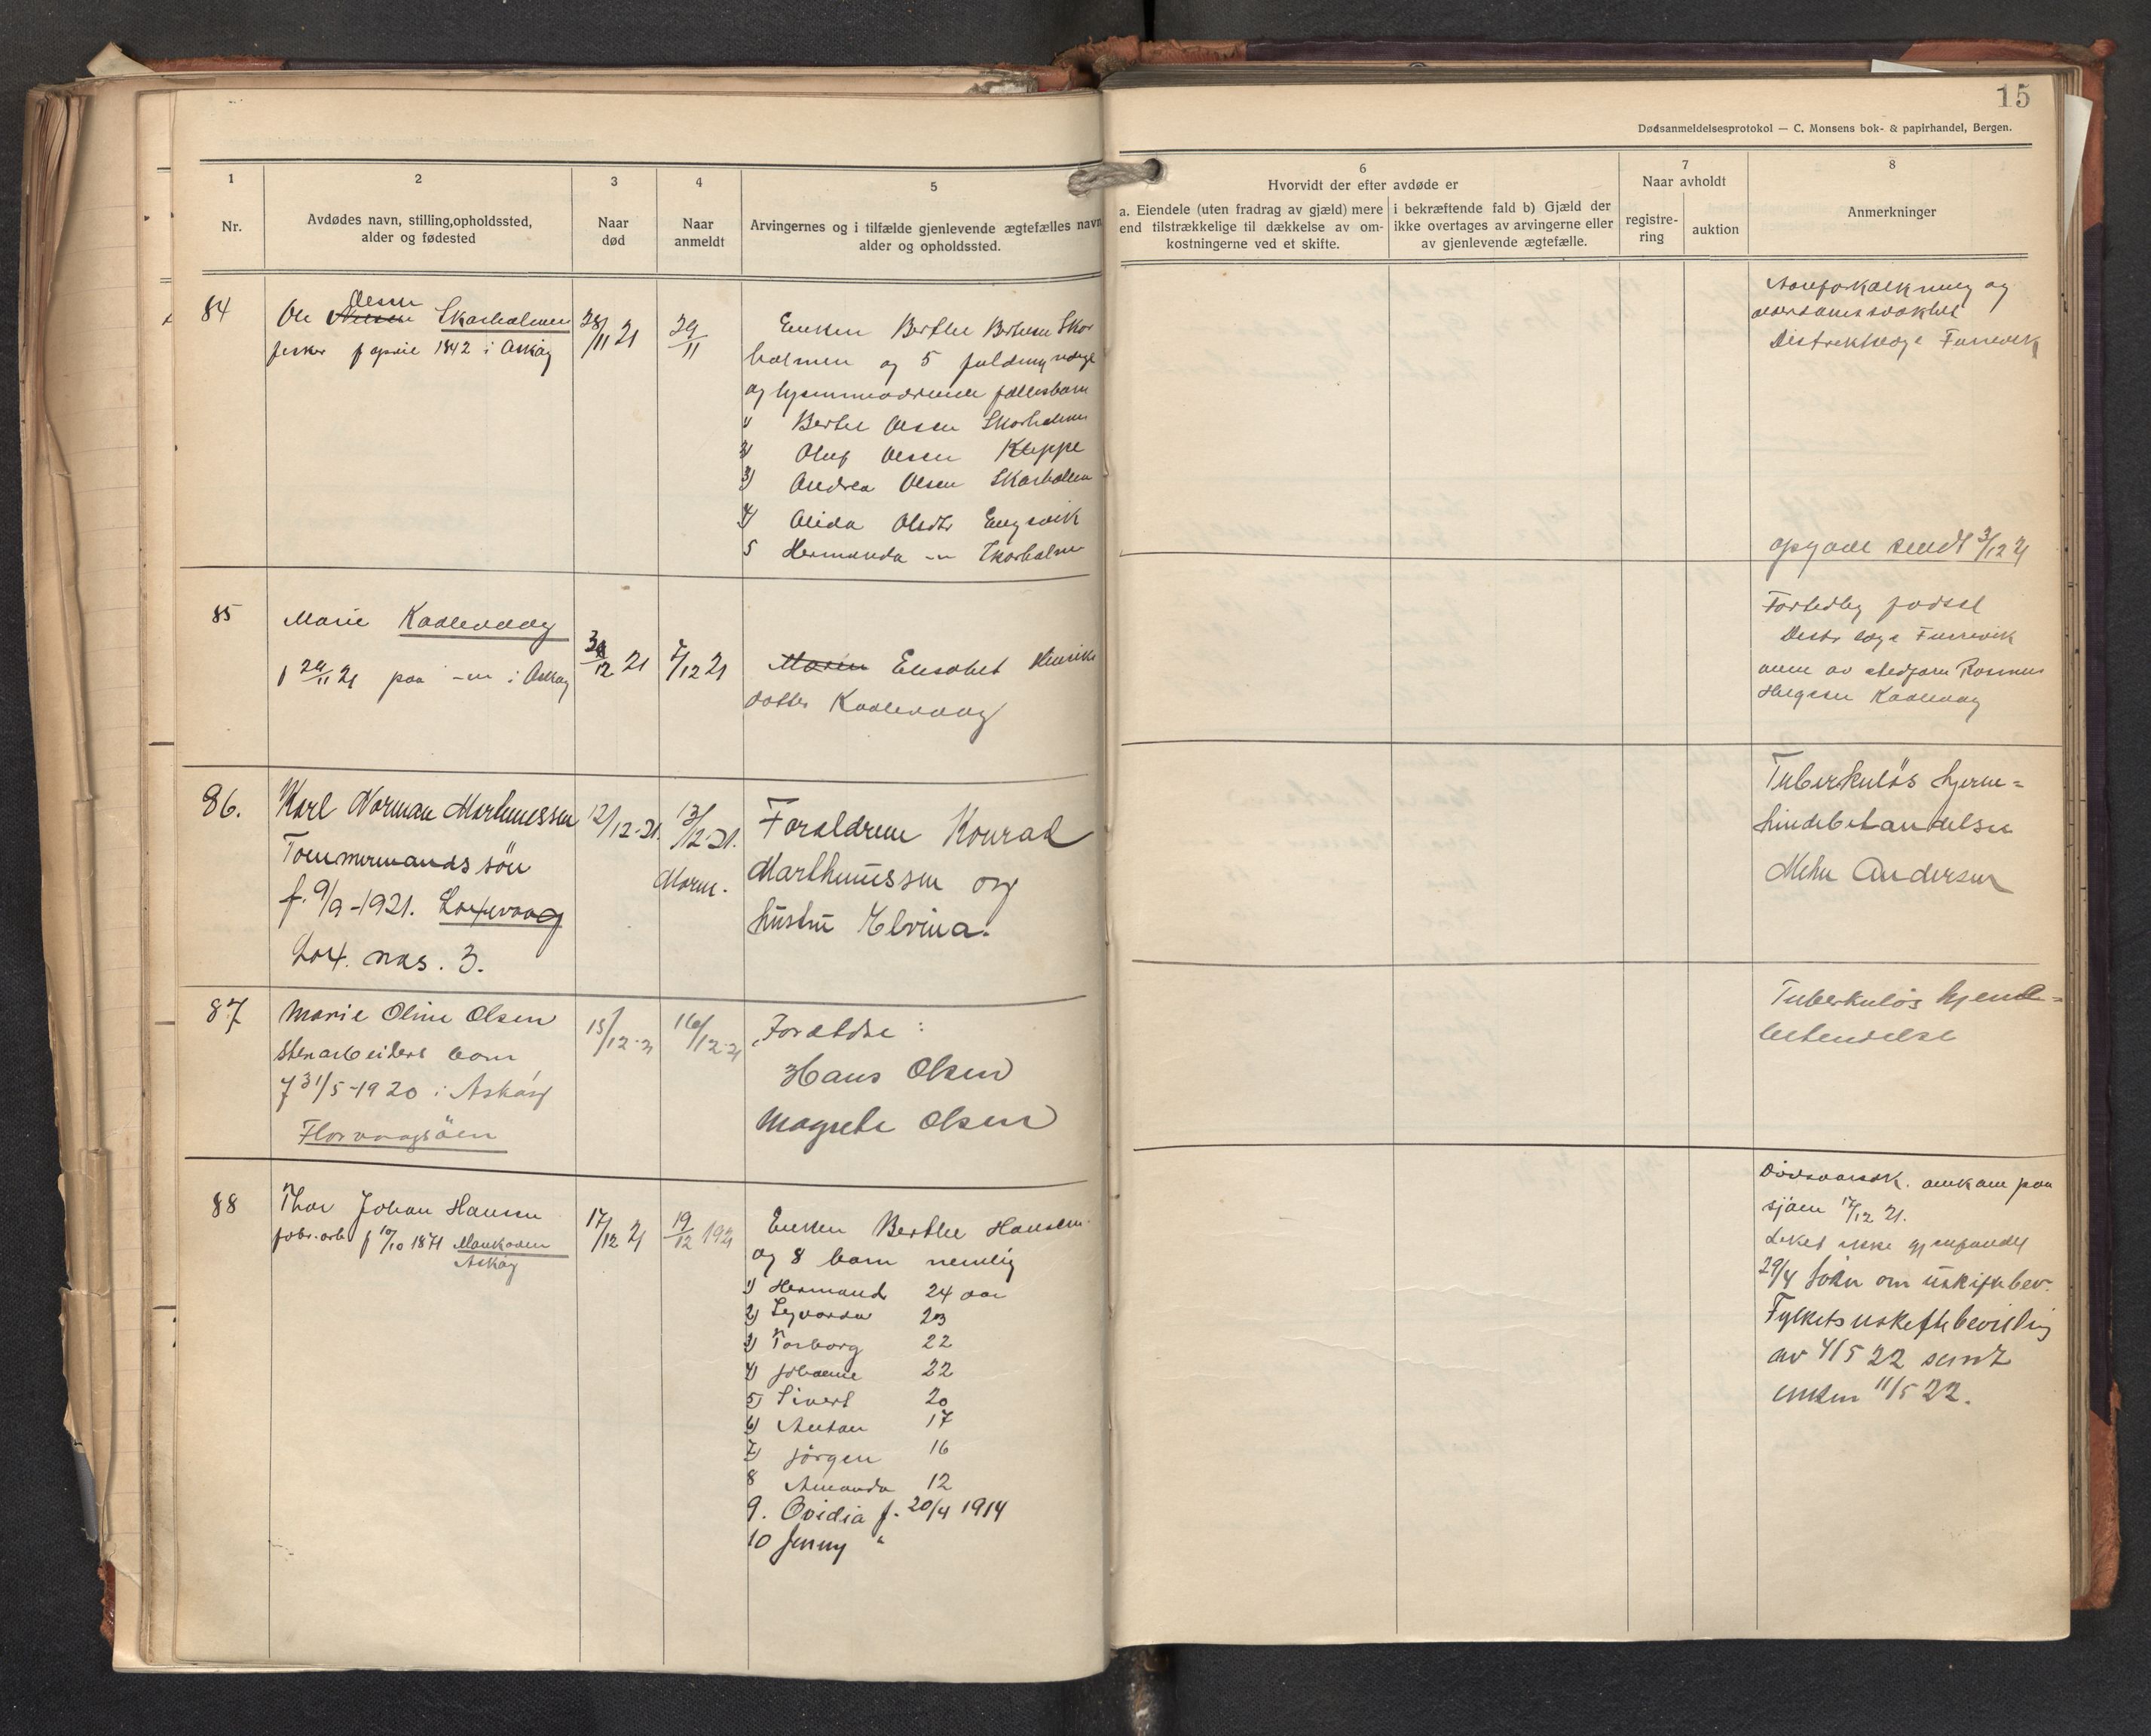 15
Dødsanmeldelsesprotokol — C. Monsens bok- & papirhandel, Bergen.
1
Nr.
2
Avdødes navn, stilling, opholdssted,
alder og fødested
3
Naar
død
4
Naar
anmeldt
5
Arvingernes og i tilfælde gjenlevende ægtefælles navn
alder og opholdssted.
6
Hvorvidt der efter avdøde er
a. Eiendele (uten fradrag av gjæld) mere
end tilstrækkelige til dækkelse av om-
kostningerne ved et skifte.
i bekræftende fald b) Gjæld der
ikke overtages av arvingerne eller
av gjenlevende ægtefælle.
7
Naar avholdt
registre-
ring
auktion
8
Anmerkninger
84
Olsen
Ole Nilsen Skarholmen
fisker f april 1842 i Askøy
28/11 21
29/11
Enken Berthe
holmen og 5 fuldmyndige
og hjemmeværende fællesbarn
1) Berthe Olsen Skarholmen
2) Oluf Olsen Kleppe
3) Andrea Olsen Skarholmen
4) Alida Olsdtr Engevik
5 Hermanda -"- Skarholmen
Aareforkalkning og
alderdomssvakhet
Distriktslæge Furrevik
opgave sendt 3/12 21
85
Marie Kaalevaag
f 29/11 21 paa -"- i Askøy
12 21
7/12 21
Maren Elisabet Henriks
datter Kaalevaag
Fortidlig fødsel
Distr læge Furrevik
anm av stedfaren Rasmus
Helgesen Kaalevaag
86.
Karl Norman Marthinussen
Tømmermands søn
f. 9/9-1921. Loxevaag
Lox. næs. 3.
12/12-21.
13/12-21.
Morm.
Forældrene Konrad
Marthinussen og
hustru Elvina.
Tuberkuløs hjerne=
hindebetændelse
Andersen
87
Marie Oline Olsen
Stenarbeiders barn
f 31/5-1920 i Askøy
Florvaagsøen
15/12-21
16/12-21
Forældre:
Hans Olsen
Magrete Olsen
Tuberkuløs hjerne=
betendelse
88
Thor Johan Hansen
fabr. arb f 10/10 1871
Askøy
17/12 21
19/12 1921
Enken Berthe Hansen
og 8 barn nemlig
1) Hermand 24 aar
2) Sigvarda 23
3) Torborg 22
4) Johanne 22
5) Sivert 20
6) Anton 17
7) Jørgen 16
8 Amanda 12
9. Ovidia f. 20/4 1914
10 Jenny "
Dødsaarsak. omkom paa
sjøen 17/12 21.
Liket ikke gjenfundet
29/4 Søkn om uskiftebev.
Fylkets uskiftebevilling
av 4/5 22 sendt
enken 11/5 22.